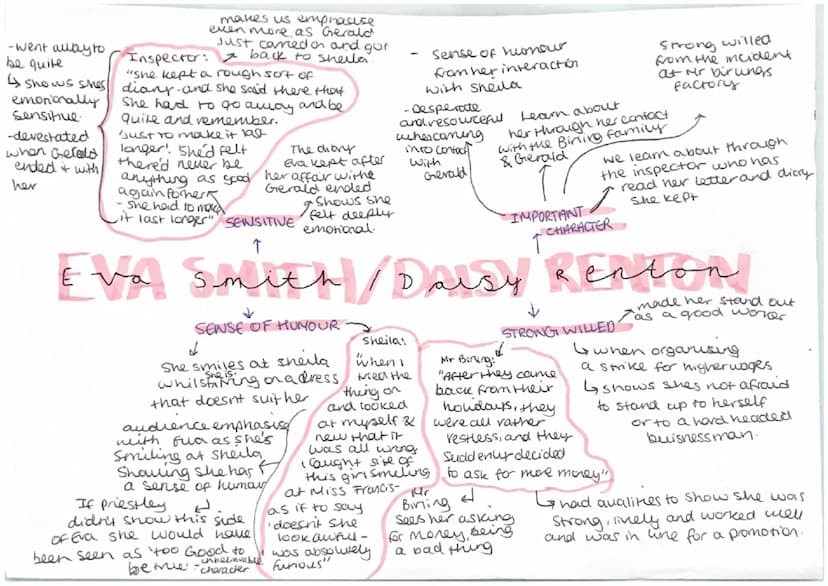 makes us emphasise
even more as Gerald
Just carried on and got
back to Sheila.
-went away to
be quite
↳ shows shes
emotionally
sensitive.
-devestated
when Gerald
ended it with
her
Inspector:
"she kept a rough sort of
diary. and she said there that
she had to go away and be
quite and remember.
'just to make it last
longer'. She'd felt
there'd never be
anything as good
again for her
- she had to make
it last longer"
The diary
Eva kept after
her affair with
Gerald ended
shows she
felt deeply
emotional.
SENSITIVE
- sense of humour
from her interaction
with Sheila
strong willed
from the incident
at Mr birlings
factory
-Desperate
and resourceful
when coming
into contact
with
Gerald
Learn about
her through her contact
with the Birling Family
& Gerald
we learn about through
the inspector who has
read her letter and diary
she kept
IMPORTANT
CHARACTER
EVA SMITH / DAISY RENTON
Eva Smith / Daisy Renton
SENSE OF HUMOUR
She smiles at sheila
whilst she is trying on a dress
that doesnt suit her
audience emphasise
with Eva as she's
smiling at Sheila
Showing she has
a sense of humour
If priestley
didn't show this side
of Eva she would have
been seen as 'too Good to
be true' - unbelievable
character
Sheila:
"when I
tried the
thing on
and looked
at myself &
new that it
was all wrong
I caught site of
this girl smiling
at Miss Francis-
as if to say
'doesn't she
look awful'-
was absolutely
furious"
STRONG WILLED
made her stand out
as a good worker
Mr Birling:
"After they came
back from their
holidays, they
were all rather
restless, and they
suddenly decided
to ask for more money"
↳ when organising
a strike for higher wages
↳ shows shes not afraid
to stand up to herself
or to a hard headed
buisnessman.
Mr
Birling
sees her asking
for money, being
a bad thing
↳ had qualities to show she was
strong, lively and worked well
and was in line for a promotion.